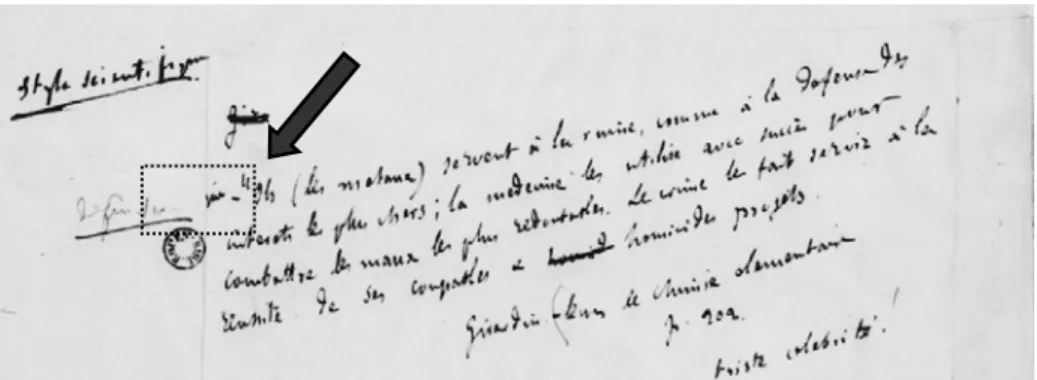 Style scientifique
Gira
"Ils (les metaux) servent à la ruine, comme à la défense des
interets les plus chers ; la médecine les utilise avec succès pour
combattre les maux les plus redoutables. Le crime les fait servir à la
réussite de ses coupables &amp; homicides projets.
Girardin - de chimie elementaire
p. 202.
triste célébrité !